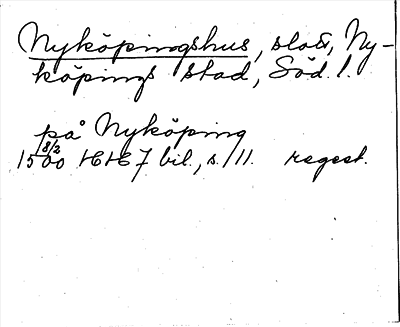 Nyköpingshus, slott, Ny-
köpings stad, Söd. l.
på Nyköping
1500 8/2 HH 7 bil., s. 11. regest.